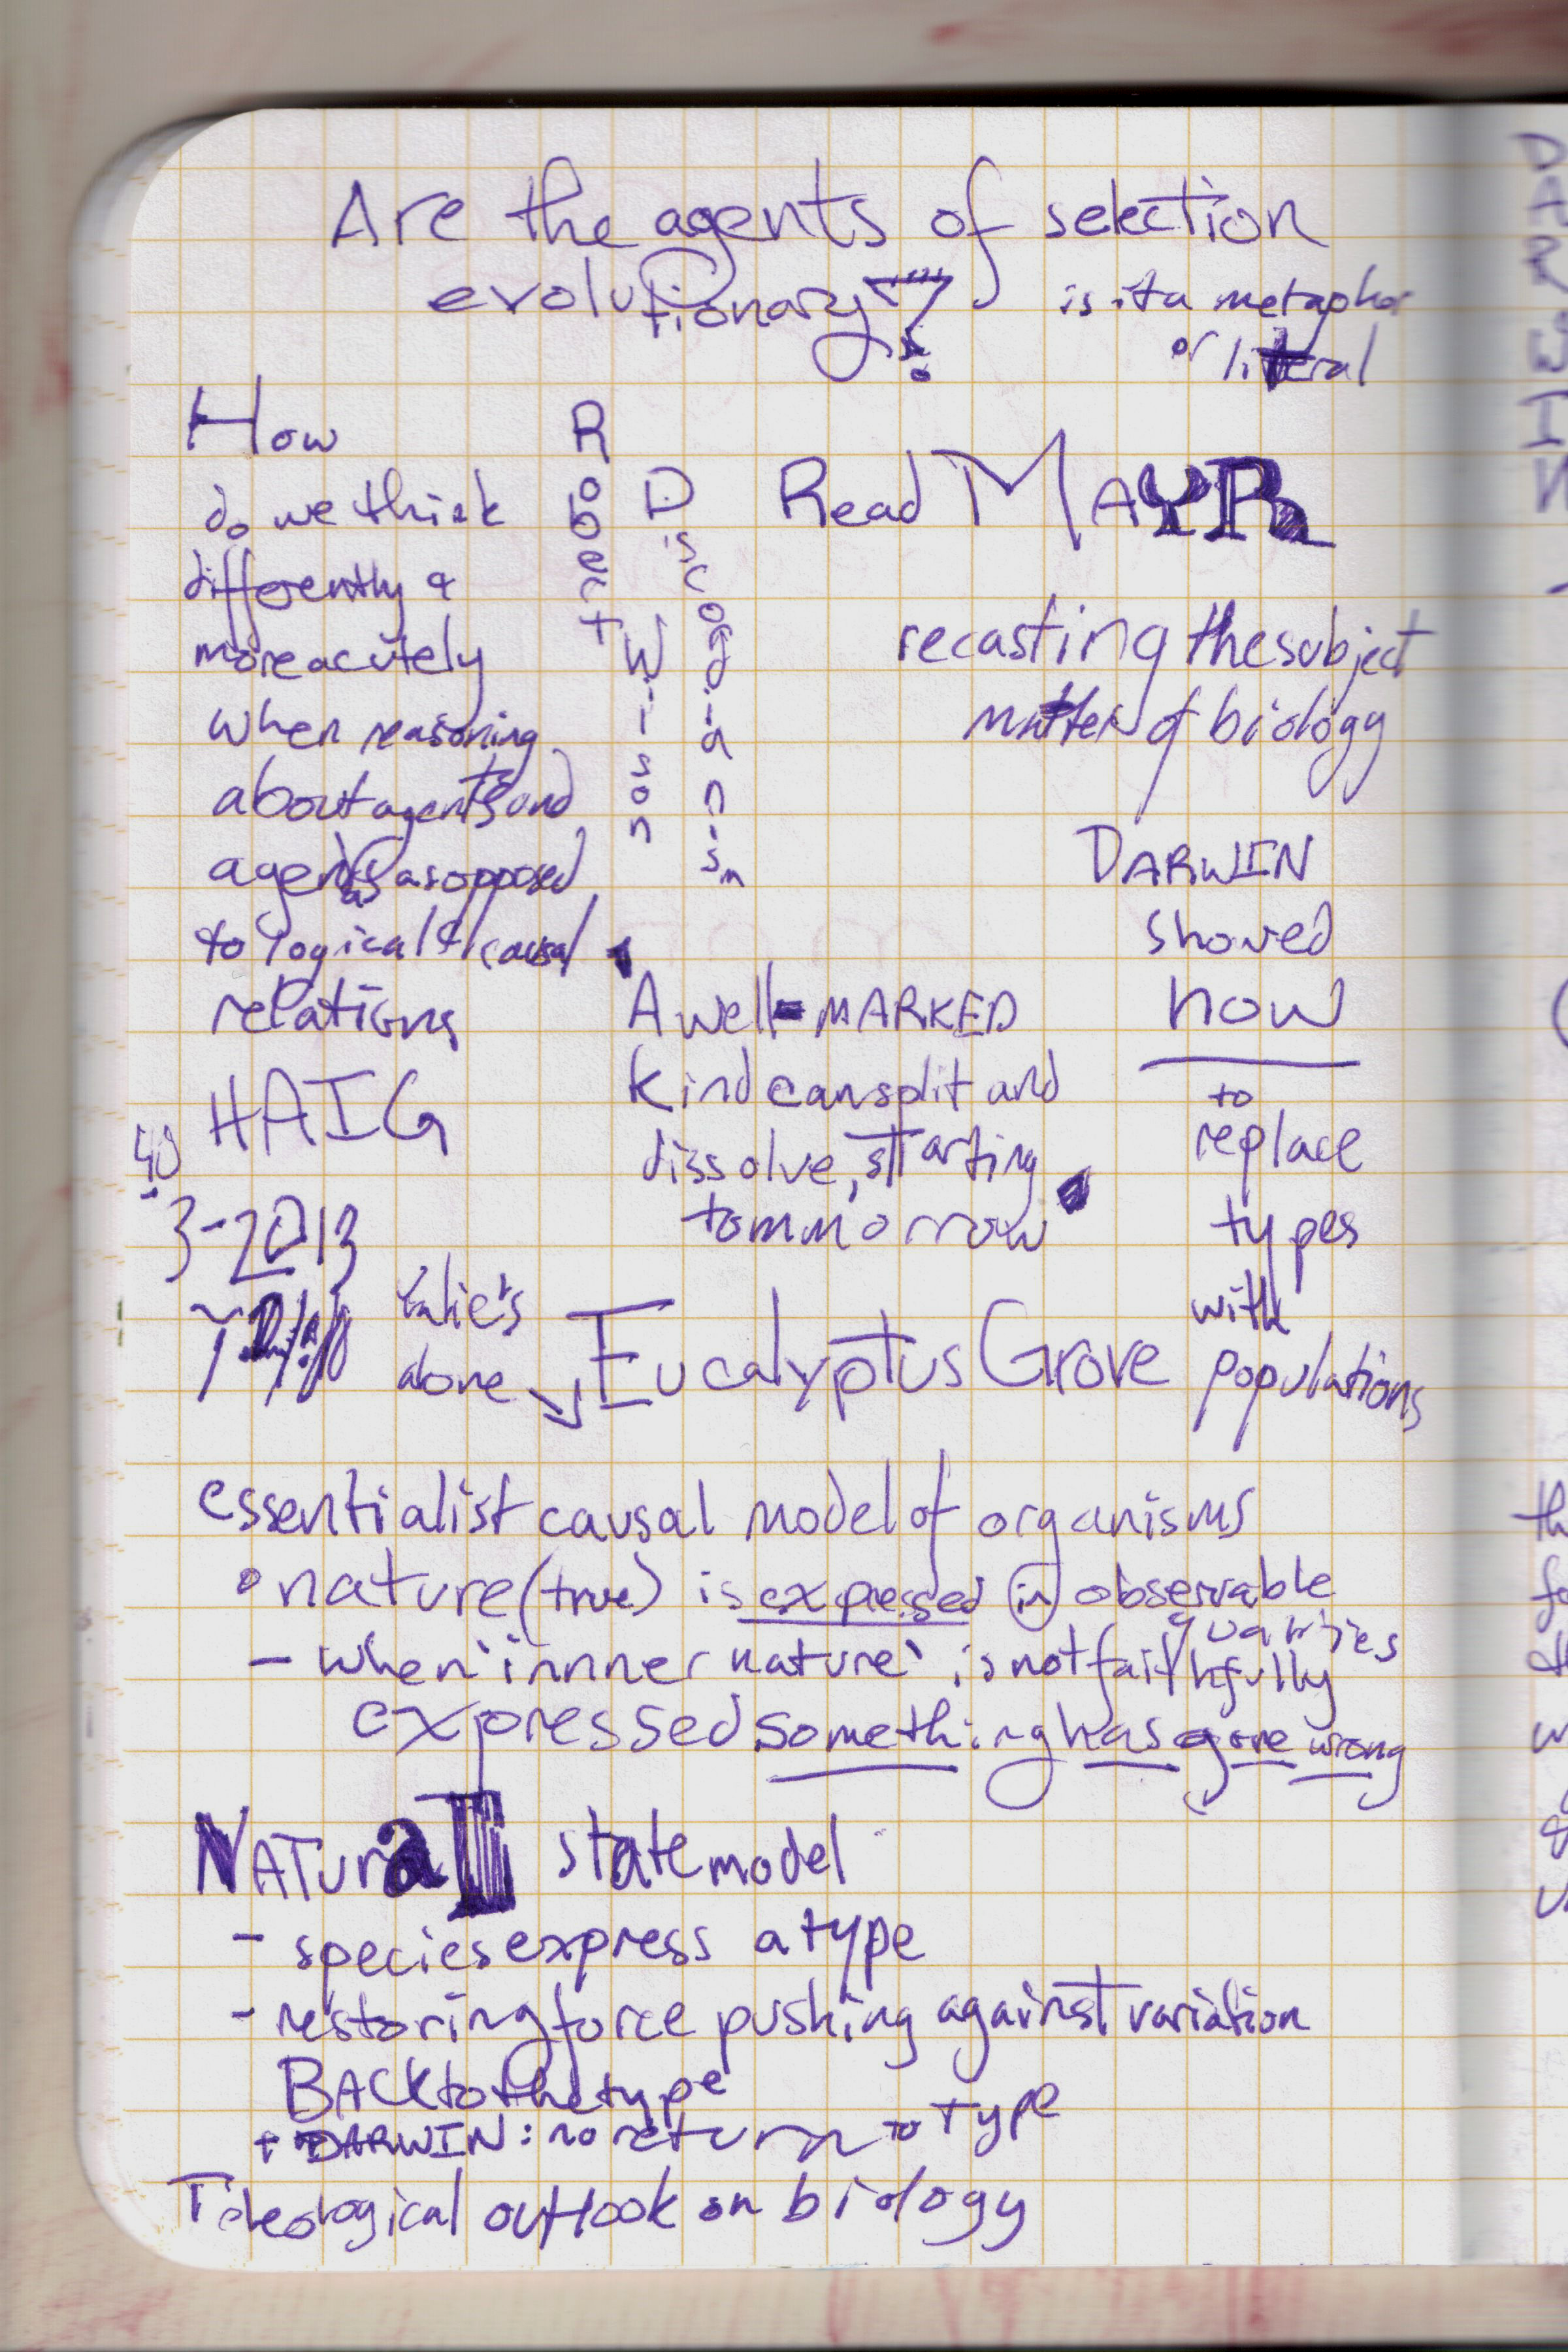 Are the agents of selection
evolutionary?
is it a metaphor
or literal
How
do we think
differently &
more acutely
when reasoning
about agents and
agents as opposed
to logical & causal
relations
HAIG
40
3-2013
Robert
Wilson
Discogianism
Read MAYR
recasting the subject
matter of biology
DARWIN
showed
how
to
replace
types
with
populations
A well-MARKED
kind can split and
dissolve, starting
tommorrow
alone
Eucalyptus Grove
essentialist causal model of organisms
• nature (true) is expressed in observable
qualities
- when 'innner nature' is not faithfully
expressed something has gone wrong
NATURAL state model
- species express a type
- restoring force pushing against variation
BACK to the type
+ DARWIN: no return to Type
Teleological outlook on biology
DARWIN